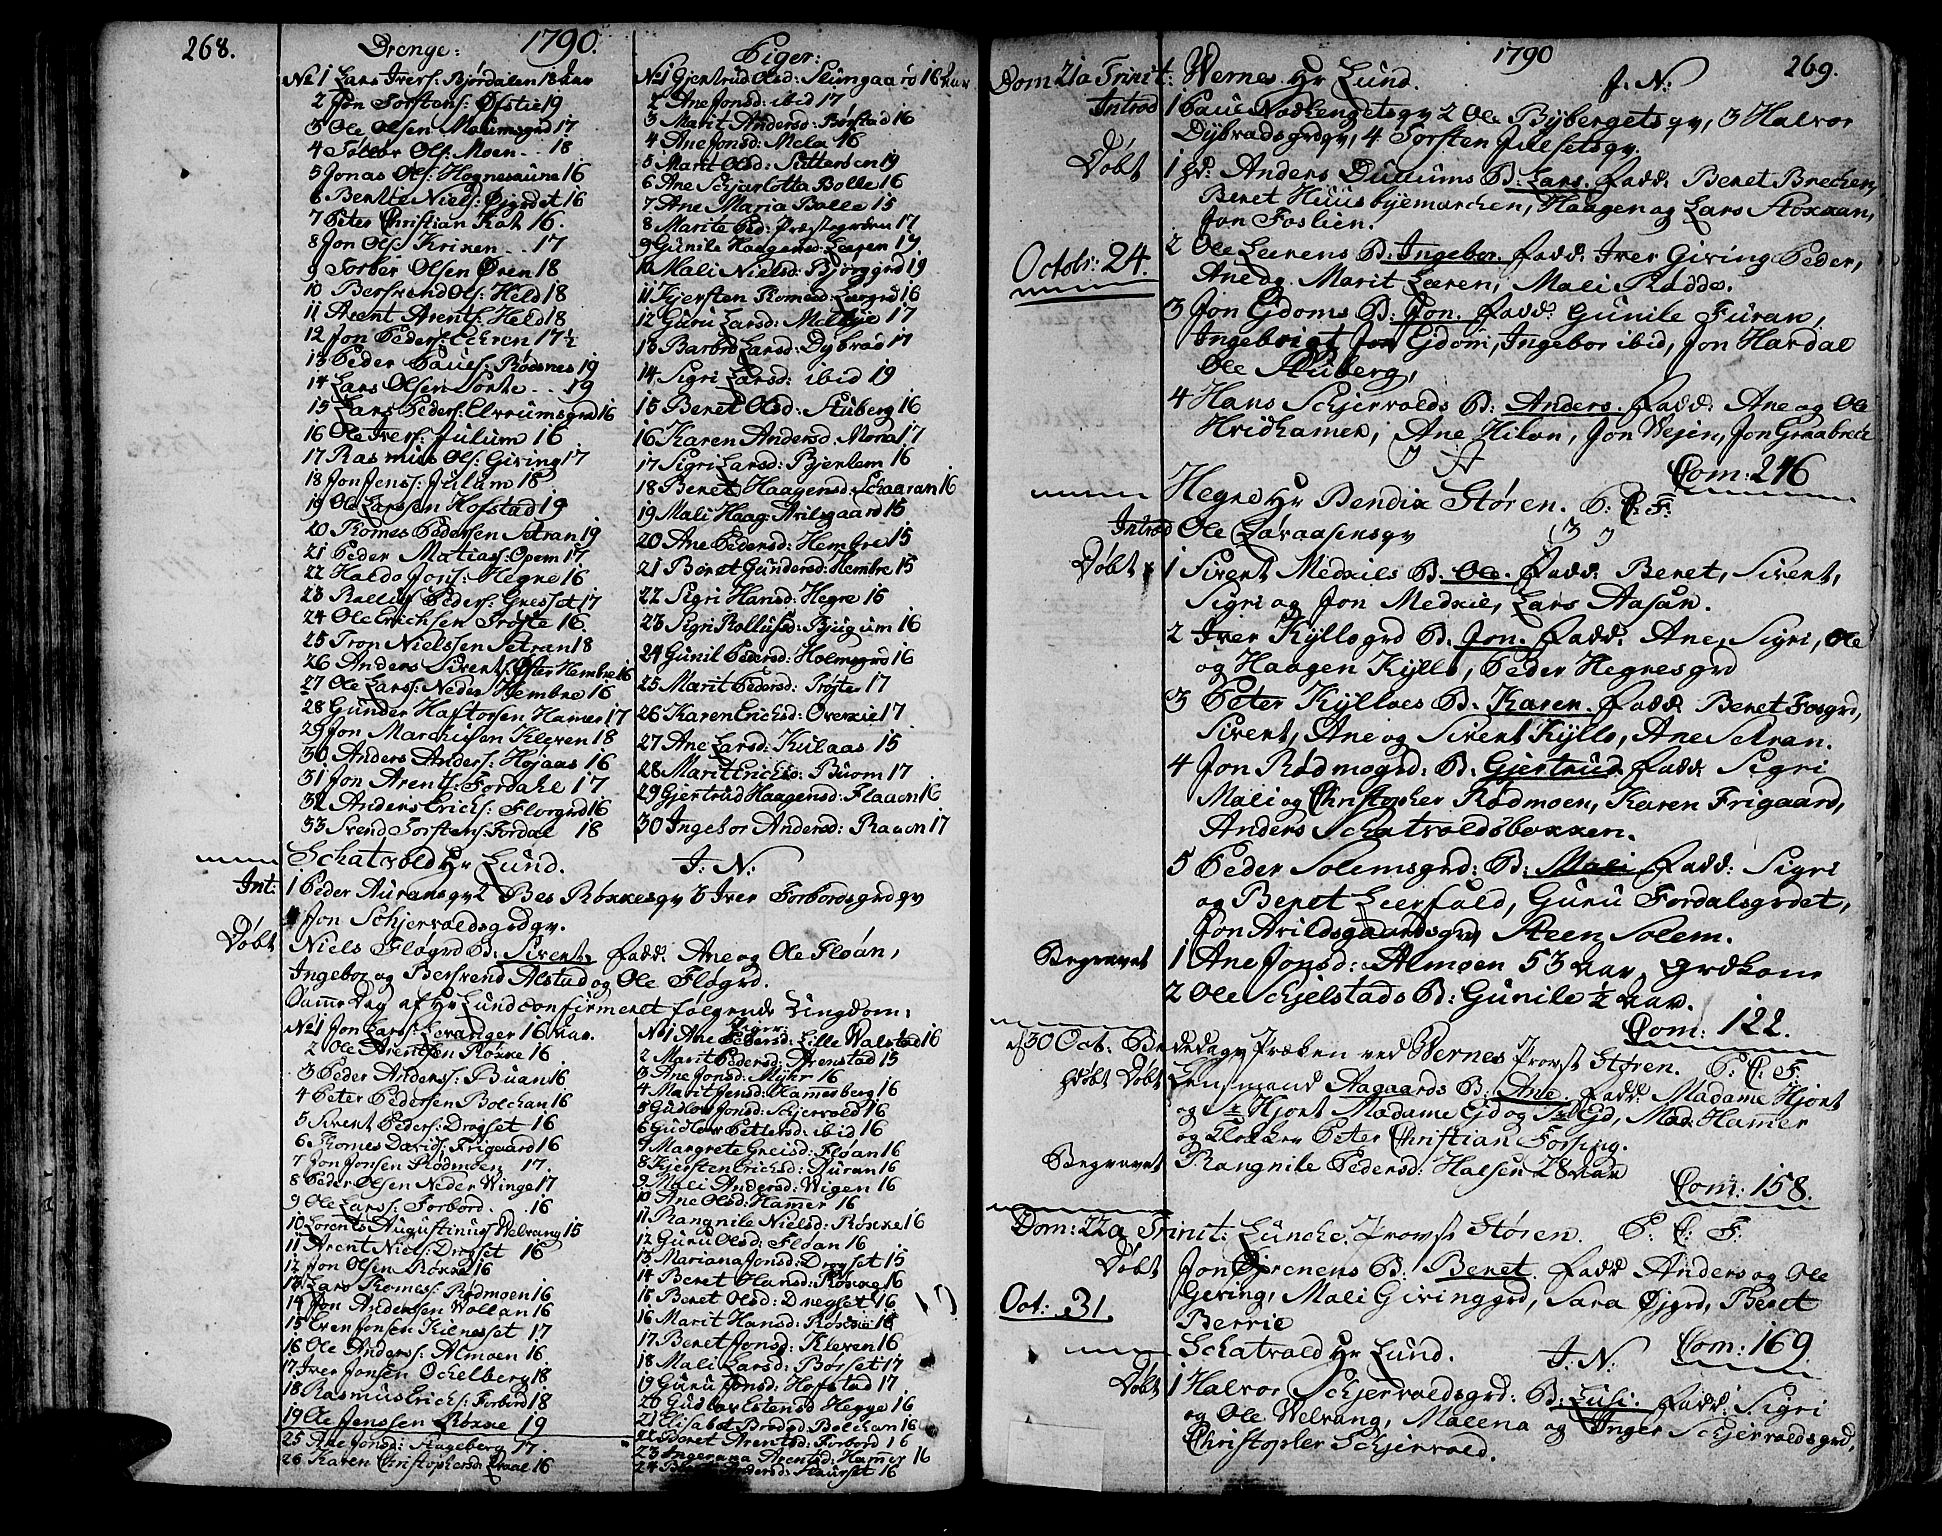 268.
Drenge: 1790. Piger:
No 1 Lars Ivers: Bjørdalen 18 aar
2 Jon Torstens: Øfstie 19
3 Ole Olsen Maumsgrd 17
4 Tollor Ols: Moen .. 18
5 Jonas Ols: Høgnesaune 16
6 Bentte Niels: Øigrdet 16
7 Peter Christian Kat 16.
8 Jon Ols: Krixen ... 17
9 Torber Olsen Øren 18
10 Bersvend Ols: Held 18
11 Arent Arents: Held 18
12 Jon Peders: Leeren 17½
13 Peder Pauels: Rødsnes 19
14 Lars Olsen Sorte .. 19
15 Lars Peders: Elvrumsgrd 16
16 Ole Ivers: Julum 16
17 Rasmus Ols: Giving 17
18 Jon Jens: Julum 18
19 Ole Larssen Hofstad 19
20 Thomes Pedersen Setran 19
21 Peder Matias: Opem 17
22 Haldo Jons: Hegre 16
23 Rolluf Peders: Gresset 17
24 Ole Erichsen Trøjte 16
25 Tron Nielssen Setran 18
26 Anders Sivents: Øfter Hembre 16
27 Ole Lars: Neder Hembre 16
28 Gunder Haftorsen Hamer 17
29 Jon Marchusen Kleven 18
30 Anders Anders: Højaas 16
31 Jon Arents: Fordahl 17
32 Anders Erichs: Floorgrd 16
33 Svend Torstens: Fordal 18
No 1 Gjertrud Olsd: Slungaard 16 aar
2 Ane Jonsd: ibid 17
3 Marit Andersd: Børstad 16
4 Ane Jonsd: Mela 16
5 Marit Olsd: Sutterøen 19
6 Ane Schjarlotta Bolle 16
7 Ane Maria Bolle 15
8 Marite Ped: Præstegrden 17
9 Gunile Haagensd: Leeren 17
10 Mali Nielsd: Bjørggrd 19
11 Kjersten Thomesd: Leergrd 16
12 Guru Larsd: Melbye 17
13 Barbro Larsd: Dybvad 17
14 Sigri Larsd: ibid 19
15 Beret Olsd: Stuberg 16
16 Karen Andersd: Mona 17
17 Sigri Larsd: Bjerkem 16
18 Beret Haagensd: Schaaran 16
19 Mali Haag: Arilsgaard 15
20 Ane Pedersd: Hembre 15
21 Beret Gundersd: Hembre 15
22 Sigri Hansd: Hegre 16
23 Sigri Rollufsd: Bjugum 16
24 Gunil Pedersd: Holmsgrd 16
25 Marit Pedersd: Trøjte 17
26 Karen Erichsd: Overvie 17
27 Ane Larsd: Kulaas 15
28 Marit Erichsd: Buom 17
29 Gjertrud Haagensd: Flaaon 16
30 Ingebor Andersd: Raaon 17
Schatvold Hr Lund. J: N:
Int: 1 Peder Auransqv 2 Bes Røkkesqv 3 Iver Forbordsgrdqv
4 Jon Schjervoldsgrdqv.
Døbt Niels Fløgrd B: Sivent, Fadd: Ane og Ole Floan,
Ingebor og Bersvend Alstad og Ole Fløgrd.
Same Dag af Hr Lund confirmeret følgende Ungdom:
No 1 Jon Lars: Levanger 16 aar.
2 Ole Arentsen Røkke 16
3 Peder Anders: Buan 16
4 Peter Pedersen Bolchan 16
5 Sivent Peders: Drogset 16
6 Thomes Davids: Frigaard 16
7 Jon Jonsen Rødmoen 17.
8 Peder Olsen Neder Winge 17
9 Ole Lars: Forbord .16
10 Lorents Augustinus Welvang 15
11 Arent Niels: Drogset 16
12 Jon Olsen Røkke 16
13 Lars Thomes: Rødmoen 16
14 Jon Anderssen Wollan 16
15 Even Jonsen Kilnesset 17
16 Ole Anders: Almoen 16.
17 Iver Jonsen Ochelberg 18
18 Rasmus Erichs: Forbord 18
19 Ole Jenssen Røkke 19
25 Ane Jonsd: Stageberg 17.
26 Karen Christophersd: Kraal 16
Piger:
No 1 Ane Pedersd: Lille Walstad 16
2 Marit Pedersd: Arenstad 15
3 Ane Jonsd: Mykr 16
4 Marit Jensd: Hamesberg 16
5 Gudlov Jonsd: Schjervold 16
6 Gudlov Pettersd: ibid 16
7 Margrete Greisd: Floan 16
8 Kjersten Erichsd: Auran 16
9 Mali Andersd: Wigen 16
10 Ane Olsd: Hamer 16
11 Rangnile Nielsd: Røkke 16
12 Guru Olsd: Fløan 16
13 Mariana Jonsd: Drogset 15
14 Beret Hansd: Røkke 16
15 Beret Olsd: Dregset 16
16 Marit Hansd: Røkke 16
17 Beret Jonsd: Kleven 16
18 Mali Larsd: Borset 17
19 Guru Jonsd: Hofstad 17
20 Gudlov Estensd Hegge 16
21 Elisabet Brodsd: Bolchan 16
22 Beret Arentsd: Forbord 16
23 Ingerana Arentsd: Hamer 16
24 Andersd: Staurset 16
1790 269.
Dom 21a Trinit: Wernes. Hr Lund. J. N:
Introd 1 Paul Nødkengetsqv 2 Ole Bybergetsqv, 3 Halvor
Dybvadsgrdqv, 4 Torsten Julsetsqv.
Døbt 1 hd: Anders Duuums B: Lars. Fadd: Beret Brechen,
Beret Huusbyemarchen, Haagen og Lars Stokkan,
Jon Foslien.
2 Ole Leerens B: Ingebor. Fadd: Iver Giving Peder,
Ane og Marit Leeren, Mali Radde.
Octobr: 24.
3 Jon Gdoms B: Jon. Fadd: Gunile Furan,
Ingebrigt Jon Gdom, Ingebor ibid, Jon Hardal
Ole Stuberg,
4 Hans Schjervolds B: Anders. Fadd: Ane og Ole
Hvidhamer, Ane Hilon, Jon Wejen, Jon Graabrech
Com: 246
Hegre Hr Bendix Støren. P: C: F:
Introd Ole Løvaasensqv
Døbt 1 Sivent Medxies B: Ole. Fadd: Beret, Sivent,
Sigri og Jon Medxie, Lars Aasan.
2 Iver Kyllogrd B: Jon. Fadd: Ane, Sigri, Ole
og Haagen Kyllo, Peder Hegresgrd
3 Peter Kylloes B: Karen. Fadd: Beret Fosgrd,
Sivent, Ane og Sivent Kyllo, Ane Setran.
4 Jon Rødmogrd: B: Gjertrud Fadd: Sigri
Mali og Christopher Rødmoen, Karen Frigaard,
Anders Schatvoldsbakken.
5 Peder Solemsgrd: B: Mali Fadd: Sigri
og Beret Leerfald, Guru Fordalsgrdet,
Jon Arildsgaardsgrd, Steen Solem.
Begravet 1 Ane Jonsd: Almoen 53 aar, grdkone
2 Ole Schjelstads B: Gunile ½ aar.
Com: 122.
d 30 Oct: Bededags Præken ved Wernes Provst Støren. P: C: F.
hdøbt Døbt Lensmand Aagaards B: Ane. Fadd: Madame Hjort
og Sr Hjort Madame Ejd og Sr Ejd, Mad: Hamer
og Klokker Peter Christian Forsing.
Begravet Rangnile Pedersd: Halsen 28 aar
Com: 158.
Dom: 22a Trinit: Luncke. Provst Støren. P: C: F.
Døbt Jon Gjerenens B: Beret. Fadd Anders og Ole
Geving, Mali Givinggrd, Sara Øjgrd, Beret
Berrie
Oct: 31.
Com: 169.
Schatvold Hr Lund. J. N:
Døbt 1 Halvor Schjervoldsgrd: B: Lusi. Fadd: Sigri
og Ole Welvang, Malena og Inger Schjervoldsgrd,
Christopher Schjervold.